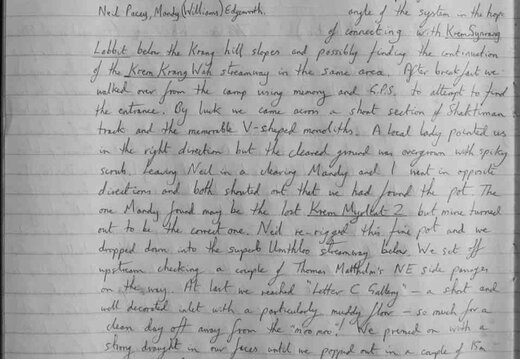 Neil Pacey, Mandy (Williams) Edgeworth. angle of the system in the hope
of connecting with Krem Synrang
Labbit below the Krang hill slopes and possibly finding the continuation
of the Krem Krang Wah streamway in the same area. After breakfast we
walked over from the camp using memory and G.P.S. to attempt to find
the entrance. By luck we came across a short section of Shaktiman
track and the memorable V-shaped monoliths. A local lady pointed us
in the right direction but the cleared ground was overgrown with spiky
scrub. Leaving Neil in a clearing Mandy and I went in opposite
directions and both shouted out that we had found the pot. The
one Mandy found may be the lost Krem 2 but mine turned
out to be the correct one. Neil re-rigged this fine pot and we
dropped down into the superb Umthloo streamway below. We set off
upstream checking a couple of Thomas NE side passages
on the way. At last we reached "Letter C Gallery" – a short and
well decorated inlet with a particularly muddy floor – so much for a
clean day off away from the "moo moo"! We pressed on with a
strong draught in our faces until we popped out in a couple of km